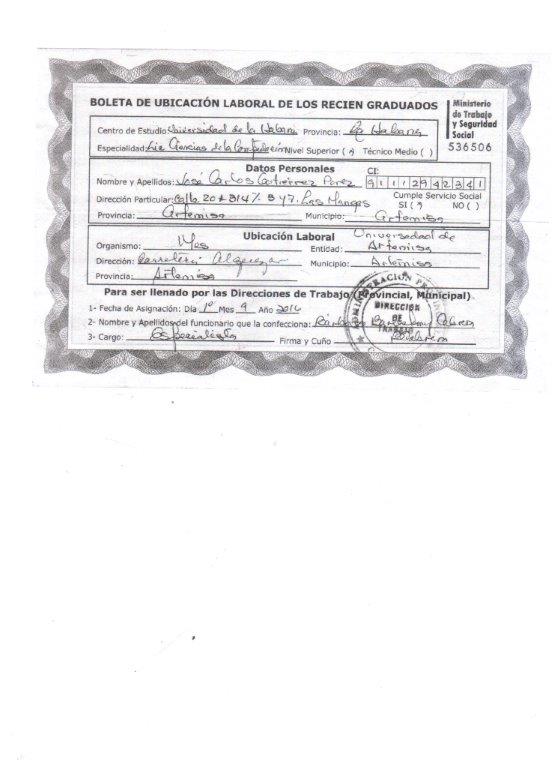 BOLETA DE UBICACIÓN LABORAL DE LOS RECIEN GRADUADOS
Ministerio
de Trabajo
y Seguridad
Social
536506
Centro de Estudio Universidad de la Habana Provincia: La Habana
Especialidad: Lic Ciencias de la Computación Nivel Superior ( ) Técnico Medio ( )
Datos Personales
CI:
Nombre y Apellidos: José Carlos Gutiérrez Pérez 91112942341
Dirección Particular: Calle 20 # 314 % 5 y 7. Las Mangas
Cumple Servicio Social
SI ( ) NO ( )
Provincia: Artemisa Municipio: Artemisa
Ubicación Laboral
Organismo: Mes Entidad: Universidad de Artemisa
Dirección: Carretera Municipio: Artemisa
Provincia: Artemisa
Para ser llenado por las Direcciones de Trabajo (Provincial, Municipal)
1- Fecha de Asignación: Día 1º Mes 9 Año 2016
2- Nombre y Apellidos del funcionario que la confecciona: Cabrera
3- Cargo: Especialista Firma y Cuño
DIRECCIÓN
DE
TRABAJO